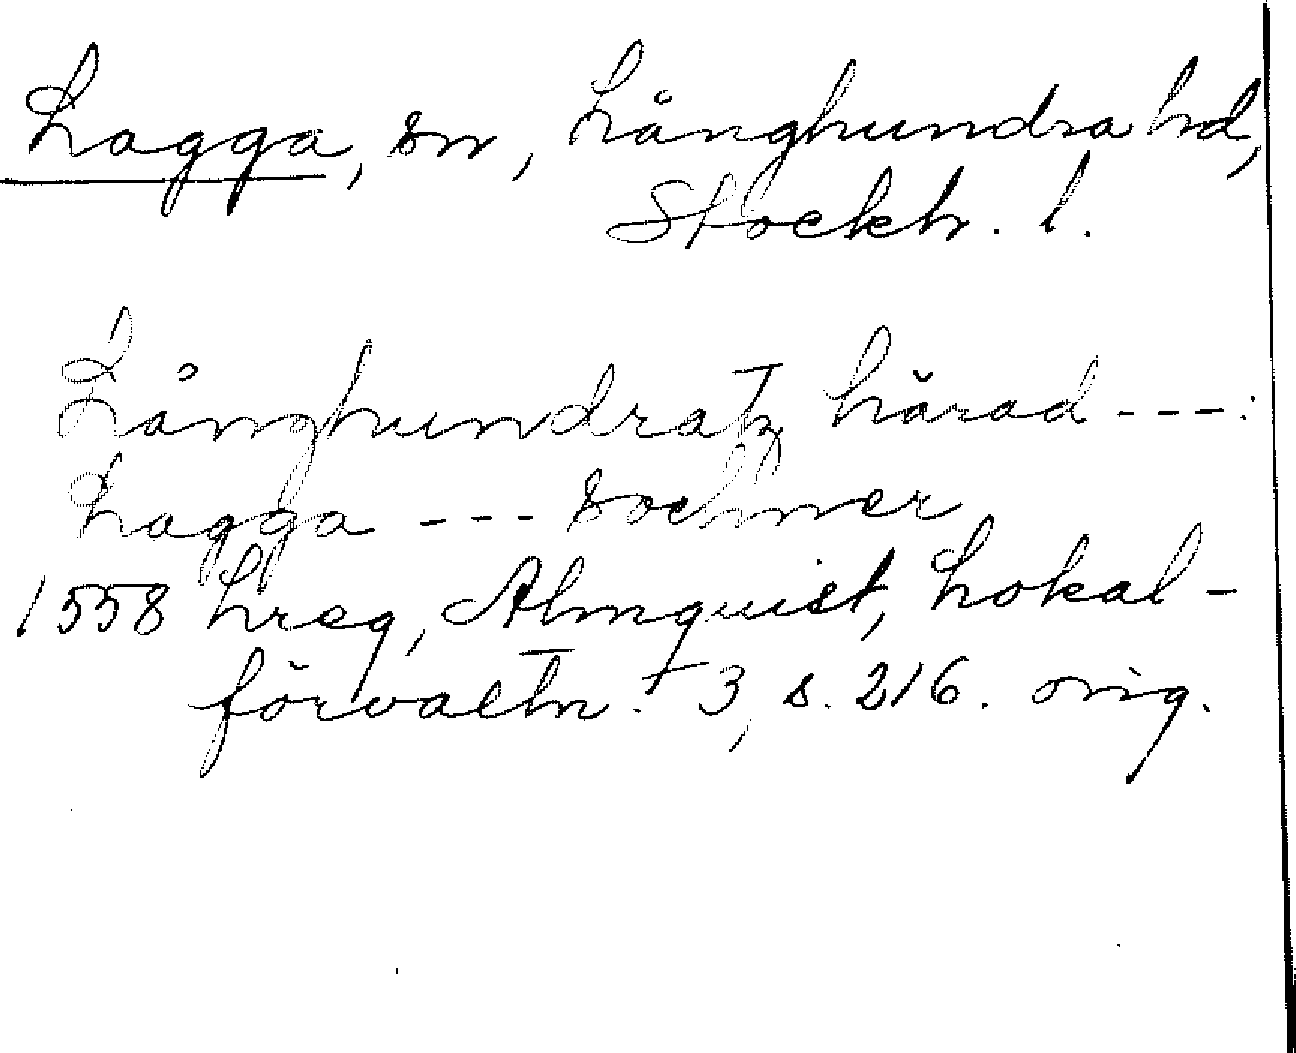 Lagga, sn, Långhundra hd,
Stockh. l.
Långhundratz härad ---:
Lagga --- sochner
1558 Lreg, Almquist, Lokal-
förvaltn. 3, s. 216. orig.